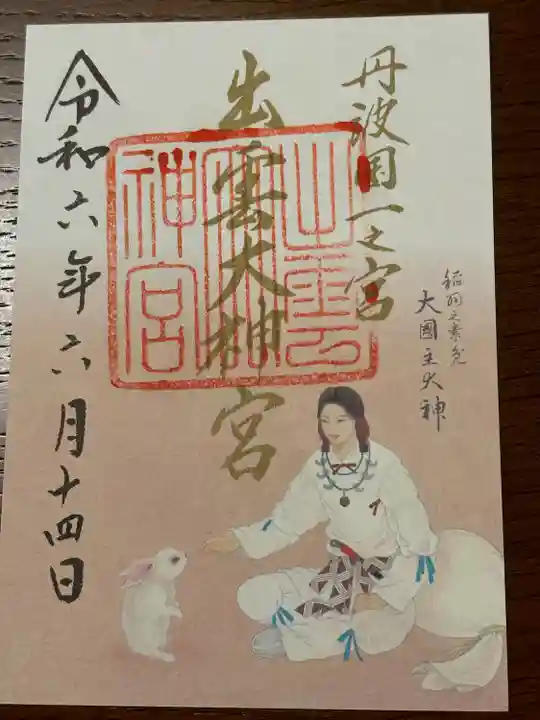 丹波國一之宮
出雲大神宮
出雲大神宮
稲羽之素兎
大國主大神
令和六年六月十四日